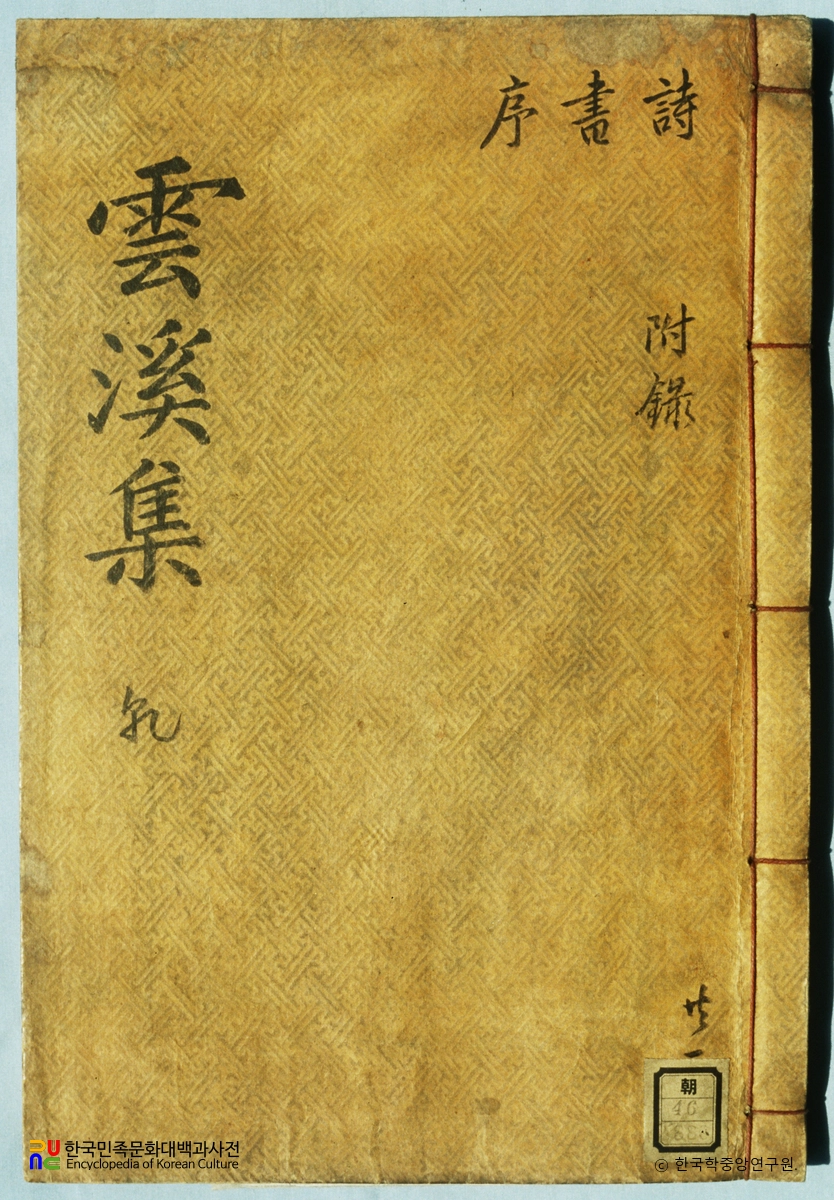 詩
書
序
附
錄
雲溪集
乾
共
朝
한국민족문화대백과사전
Encyclopedia of Korean Culture
ⓒ 한국학중앙연구원